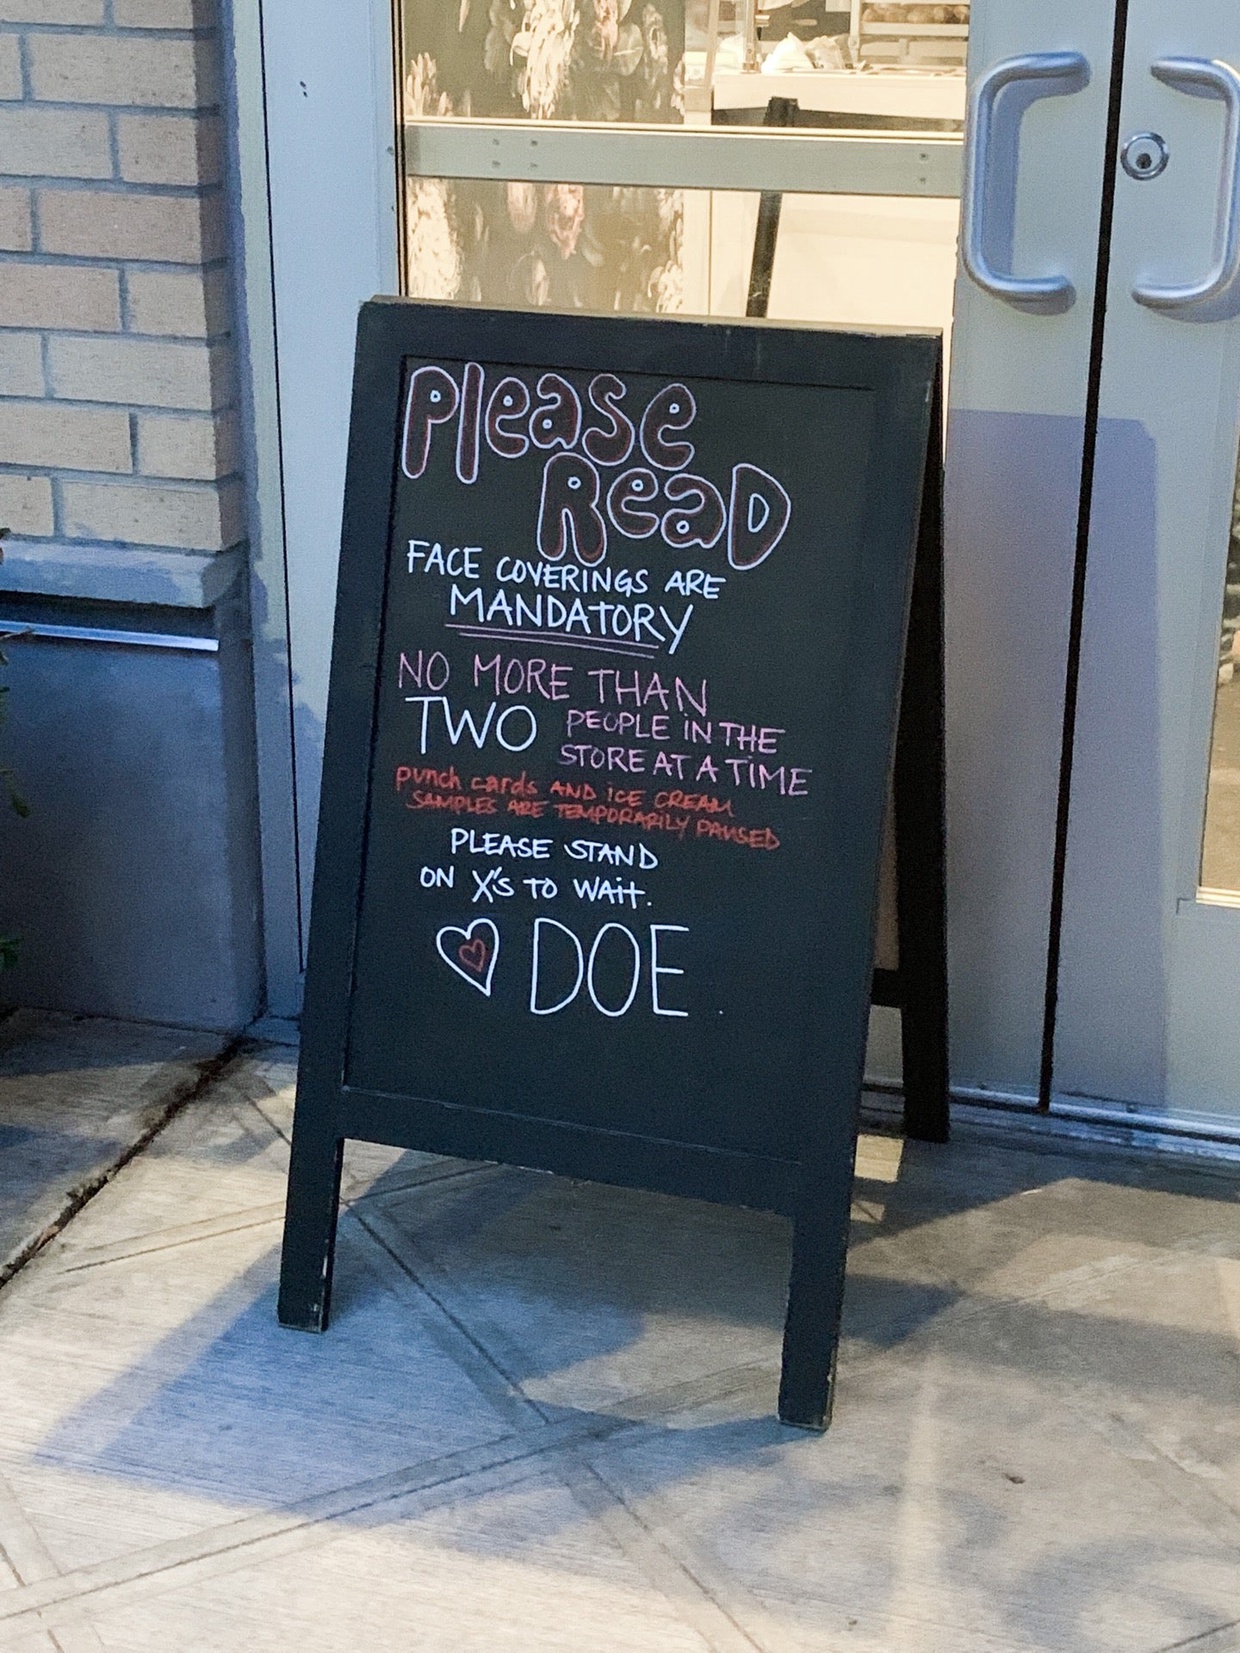 Please
ReaD
FACE COVERINGS ARE
MANDATORY
NO MORE THAN
TWO PEOPLE iN THE
STORE AT A TiME
punch cards AND iCE CREAM
SAMPLES ARE TEMPORARILY PAUSED
PLEASE STAND
ON X'S TO WAit.
DOE